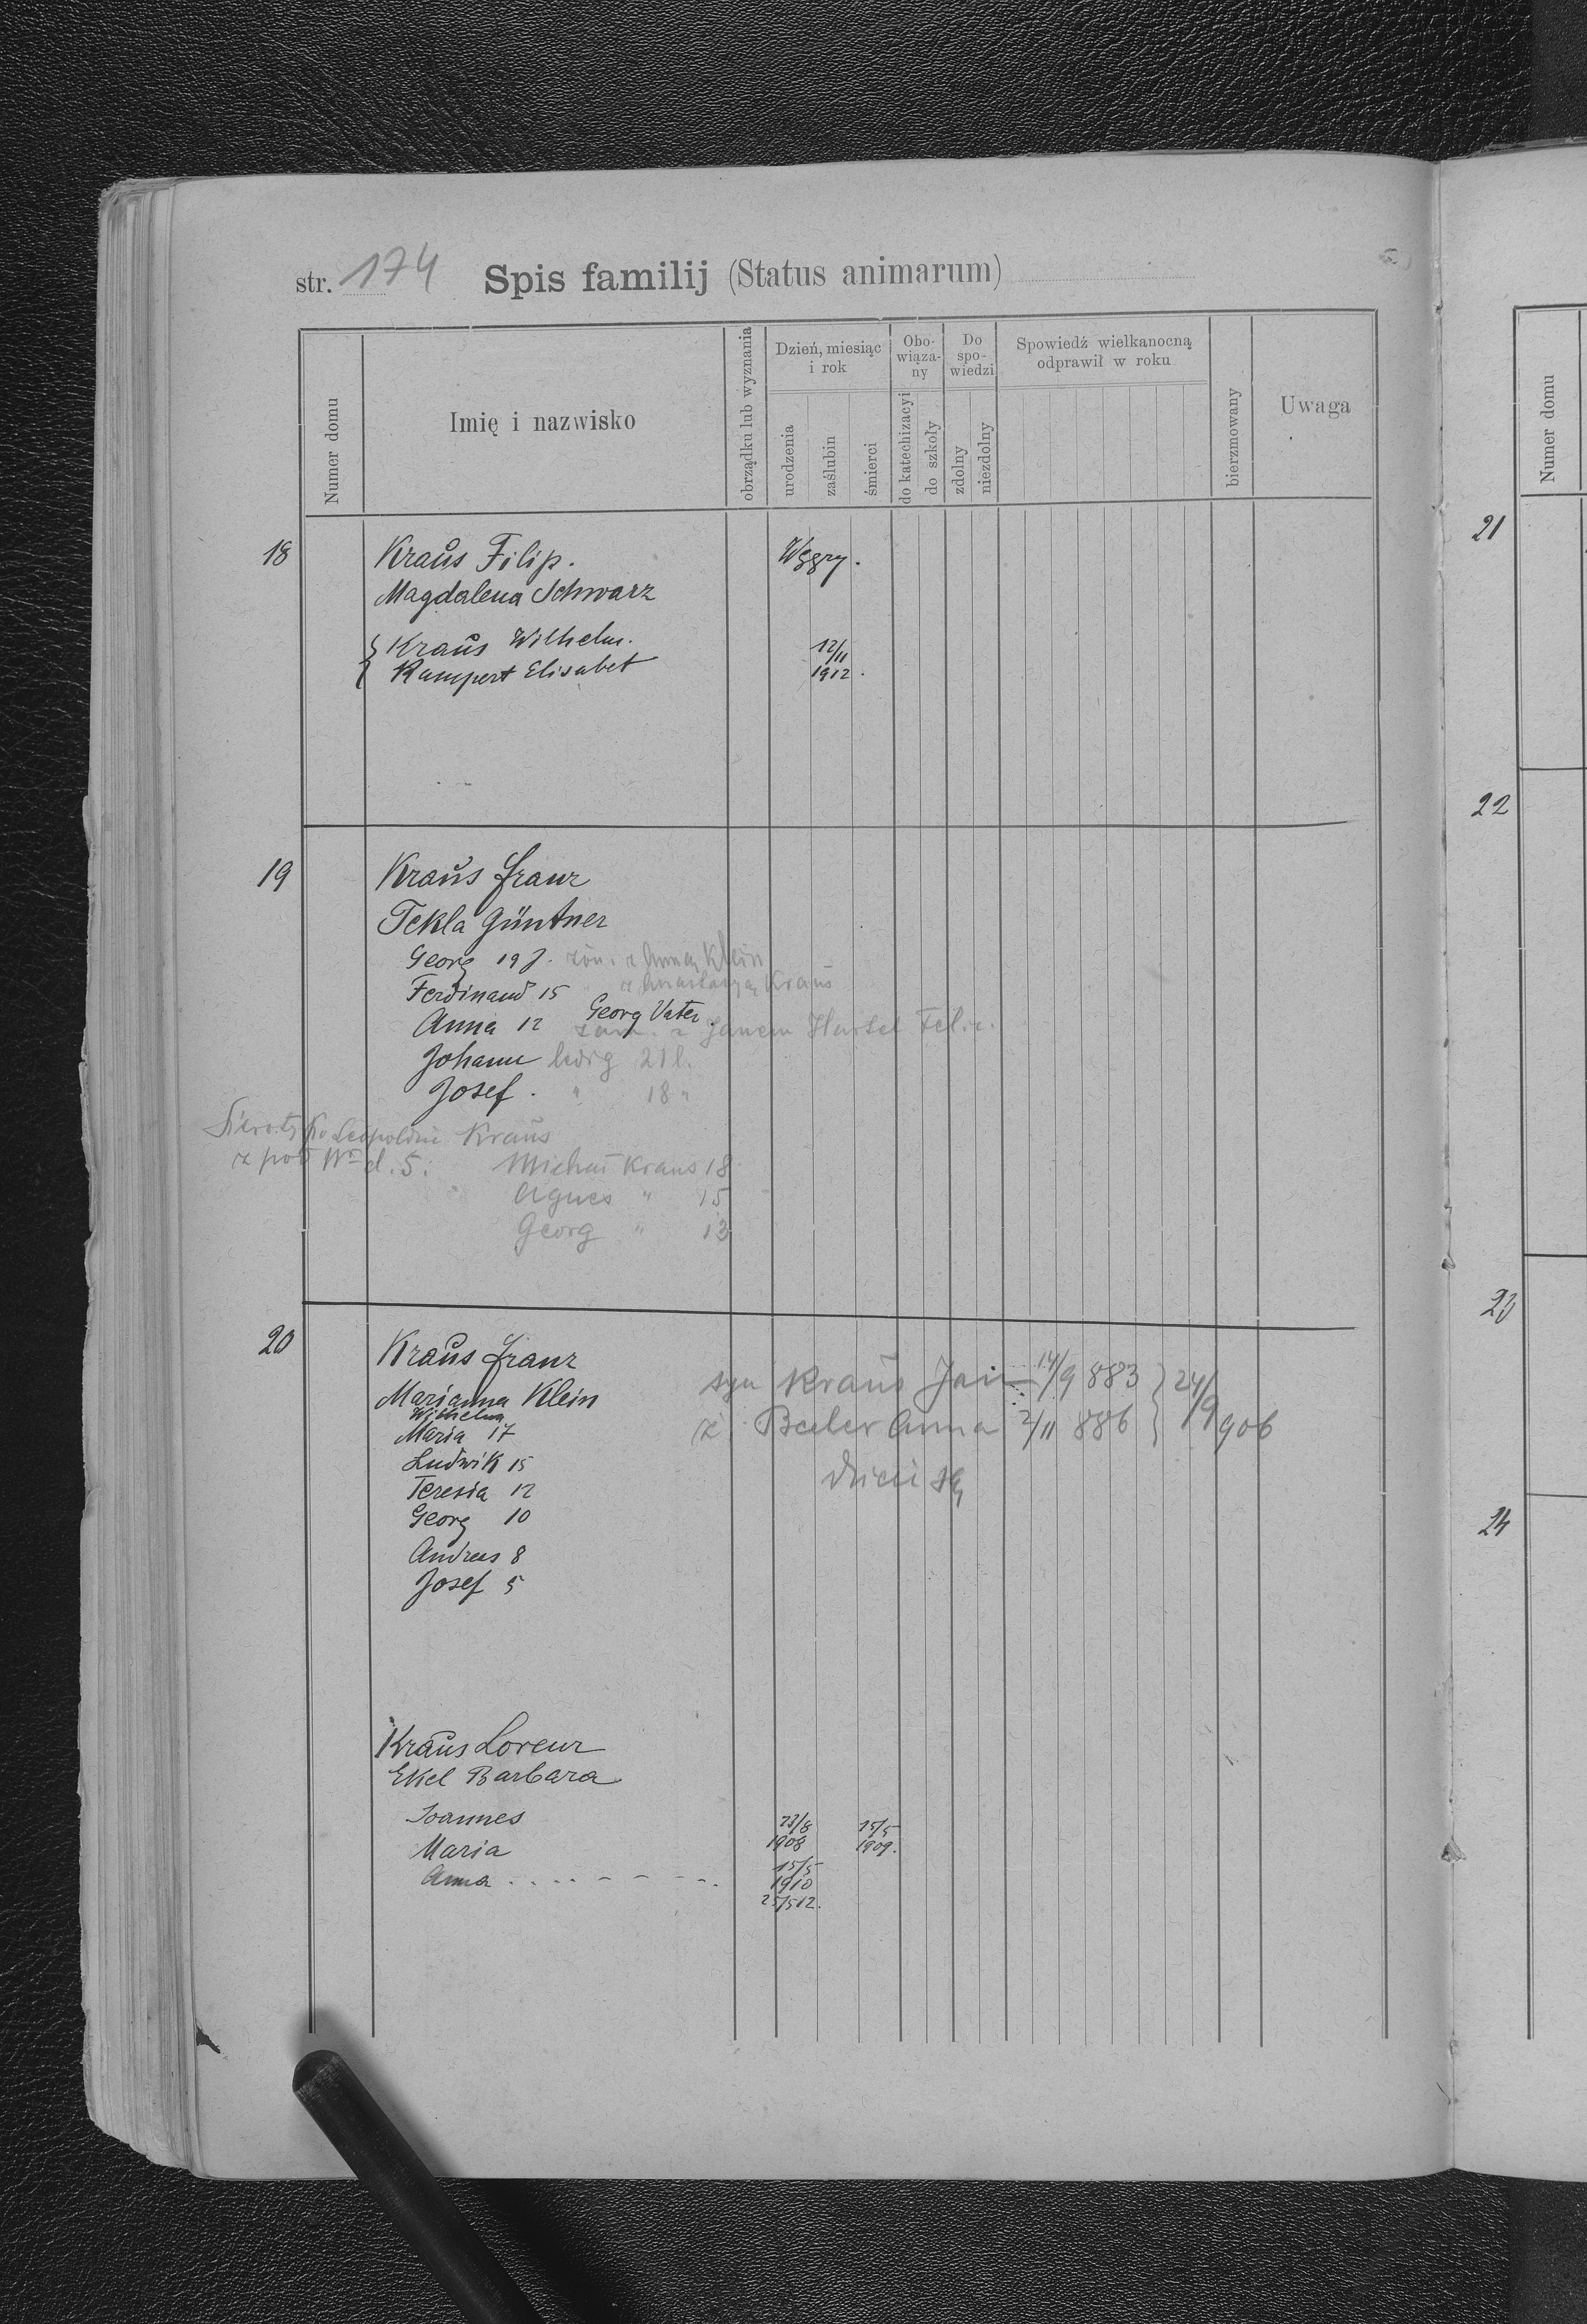 str. 174 Spis familij (Status animarum)
Numer domu
Imię i nazwisko
obrządku lub wyznania
Dzień, miesiąc i rok
urodzenia
zaślubin
śmierci
Obo-wiąza-ny
do katechizacyi
do szkoły
Do spo-wiedzi
zdolny
niezdolny
Spowiedź wielkanocną odprawił w roku
bierzmowany
Uwaga
18 Kraŭs Filip. Węgry.
Magdalena Schwarz
Kraŭs Wilhelm. 12/11
Rampert Elisabet 1912.
19 Kraŭs Franz
Tekla Güntner
Georg 19 J. żon. z Anną Klein
Ferdinand 15 z Anastazyą Kraŭs
Georg Vater.
Anna 12 zam. z Janem Hartel Fel.
Johann ledig 21 l.
Josef. " 18 "
Sieroty po Leopoldzie Kraŭs
z pod Nr d. 5. Michał Kraus 18
Agnes " 15
Georg " 13
20 Kraŭs Franz
syn Kraŭs Jan 14/9 883 } 24/9 906
Marianna Klein
ż. Beeler Anna 2/11 886
Wilhelm
Maria 17
Ludwik 15
dzieci są
Teresia 12
Georg 10
Andreas 8
Josef 5
Kraŭs Lorenz
Ekel Barbara
Joannes 23/8 1908 15/5 1909.
Maria 15/5 1910
Anna 25/5 12.
Numer domu
21
22
23
24